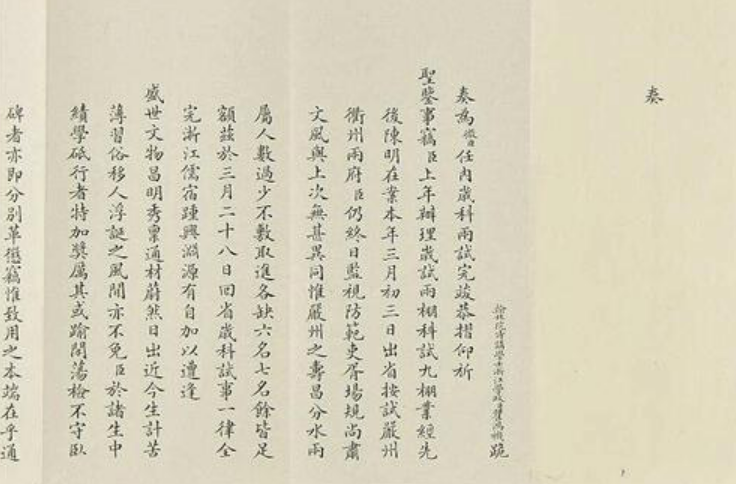 奏
翰林院侍講學士浙江學政臣瞿鴻禨跪
奏為微臣任內歲科兩試完竣恭摺仰祈
聖鑒事竊臣上年辦理歲試兩棚科試九棚業經先
後陳明在案本年三月初三日出省按試嚴州
衢州兩府臣仍終日監視防範吏胥場規尚肅
文風與上次無甚異同惟嚴州之壽昌分水兩
屬人數過少不敷取進各缺六名七名餘皆足
額茲於三月二十八日回省歲科試事一律全
完浙江儒宿踵興淵源有自加以遭逢
盛世文物昌明秀稟通材蔚然日出近今生計苦
薄習俗移人浮誕之風間亦不免臣於諸生中
績學砥行者特加獎厲其或踰閑蕩檢不守臥
碑者亦即分別革懲竊惟致用之本端在乎通